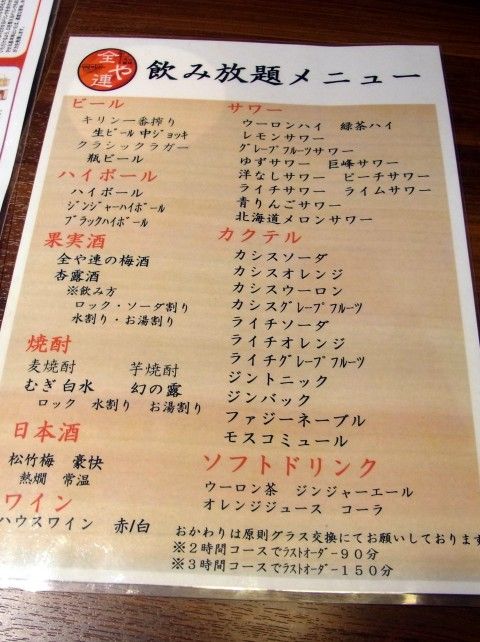 全や連
飲み放題メニュー
ビール
キリン一番搾り
生ビール 中ジョッキ
クラシックラガー
瓶ビール
ハイボール
ハイボール
ジンジャーハイボール
ブラックハイボール
果実酒
全や連の梅酒
杏露酒
※飲み方
ロック・ソーダ割り
水割り・お湯割り
焼酎
麦焼酎 芋焼酎
むぎ白水 幻の露
ロック 水割り お湯割り
日本酒
松竹梅 豪快
熱燗 常温
ワイン
ハウスワイン 赤/白
サワー
ウーロンハイ 緑茶ハイ
レモンサワー
グレープフルーツサワー
ゆずサワー 巨峰サワー
洋なしサワー ピーチサワー
ライチサワー ライムサワー
青りんごサワー
北海道メロンサワー
カクテル
カシスソーダ
カシスオレンジ
カシスウーロン
カシスグレープフルーツ
ライチソーダ
ライチオレンジ
ライチグレープフルーツ
ジントニック
ジンバック
ファジーネーブル
モスコミュール
ソフトドリンク
ウーロン茶 ジンジャーエール
オレンジジュース コーラ
おかわりは原則グラス交換にてお願いしております
※２時間コースでラストオーダー９０分
※３時間コースでラストオーダー１５０分